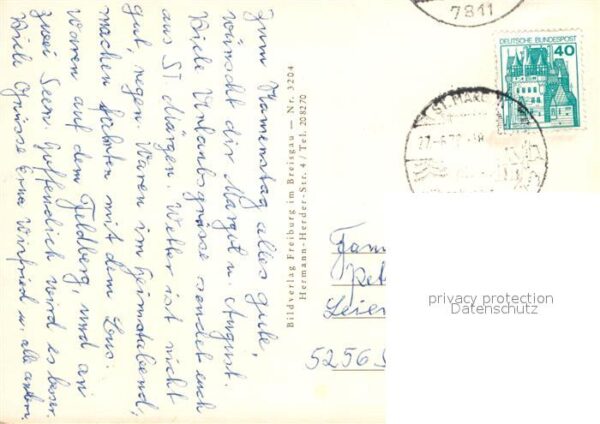 Zum Namenstag alles gute,
wünscht dir Margot u. August.
Viele Urlaubsgrüsse sendet euch
aus St Märgen. Wetter ist nicht
gut, regen. Waren im Heimatabend,
machen fahrten mit dem Bus.
Waren auf dem Feldberg, und an
zwei Seen. Hoffendlich wird es besser.
Viele Grüsse Erna Winfried u. alle andern.
Bildverlag Freiburg im Breisgau — Nr. 3204
Hermann-Herder-Str. 4 / Tel. 208270
7811
DEUTSCHE BUNDESPOST
40
ST. MÄRG
Fam
Pet
Leier
5256
privacy protection
Datenschutz